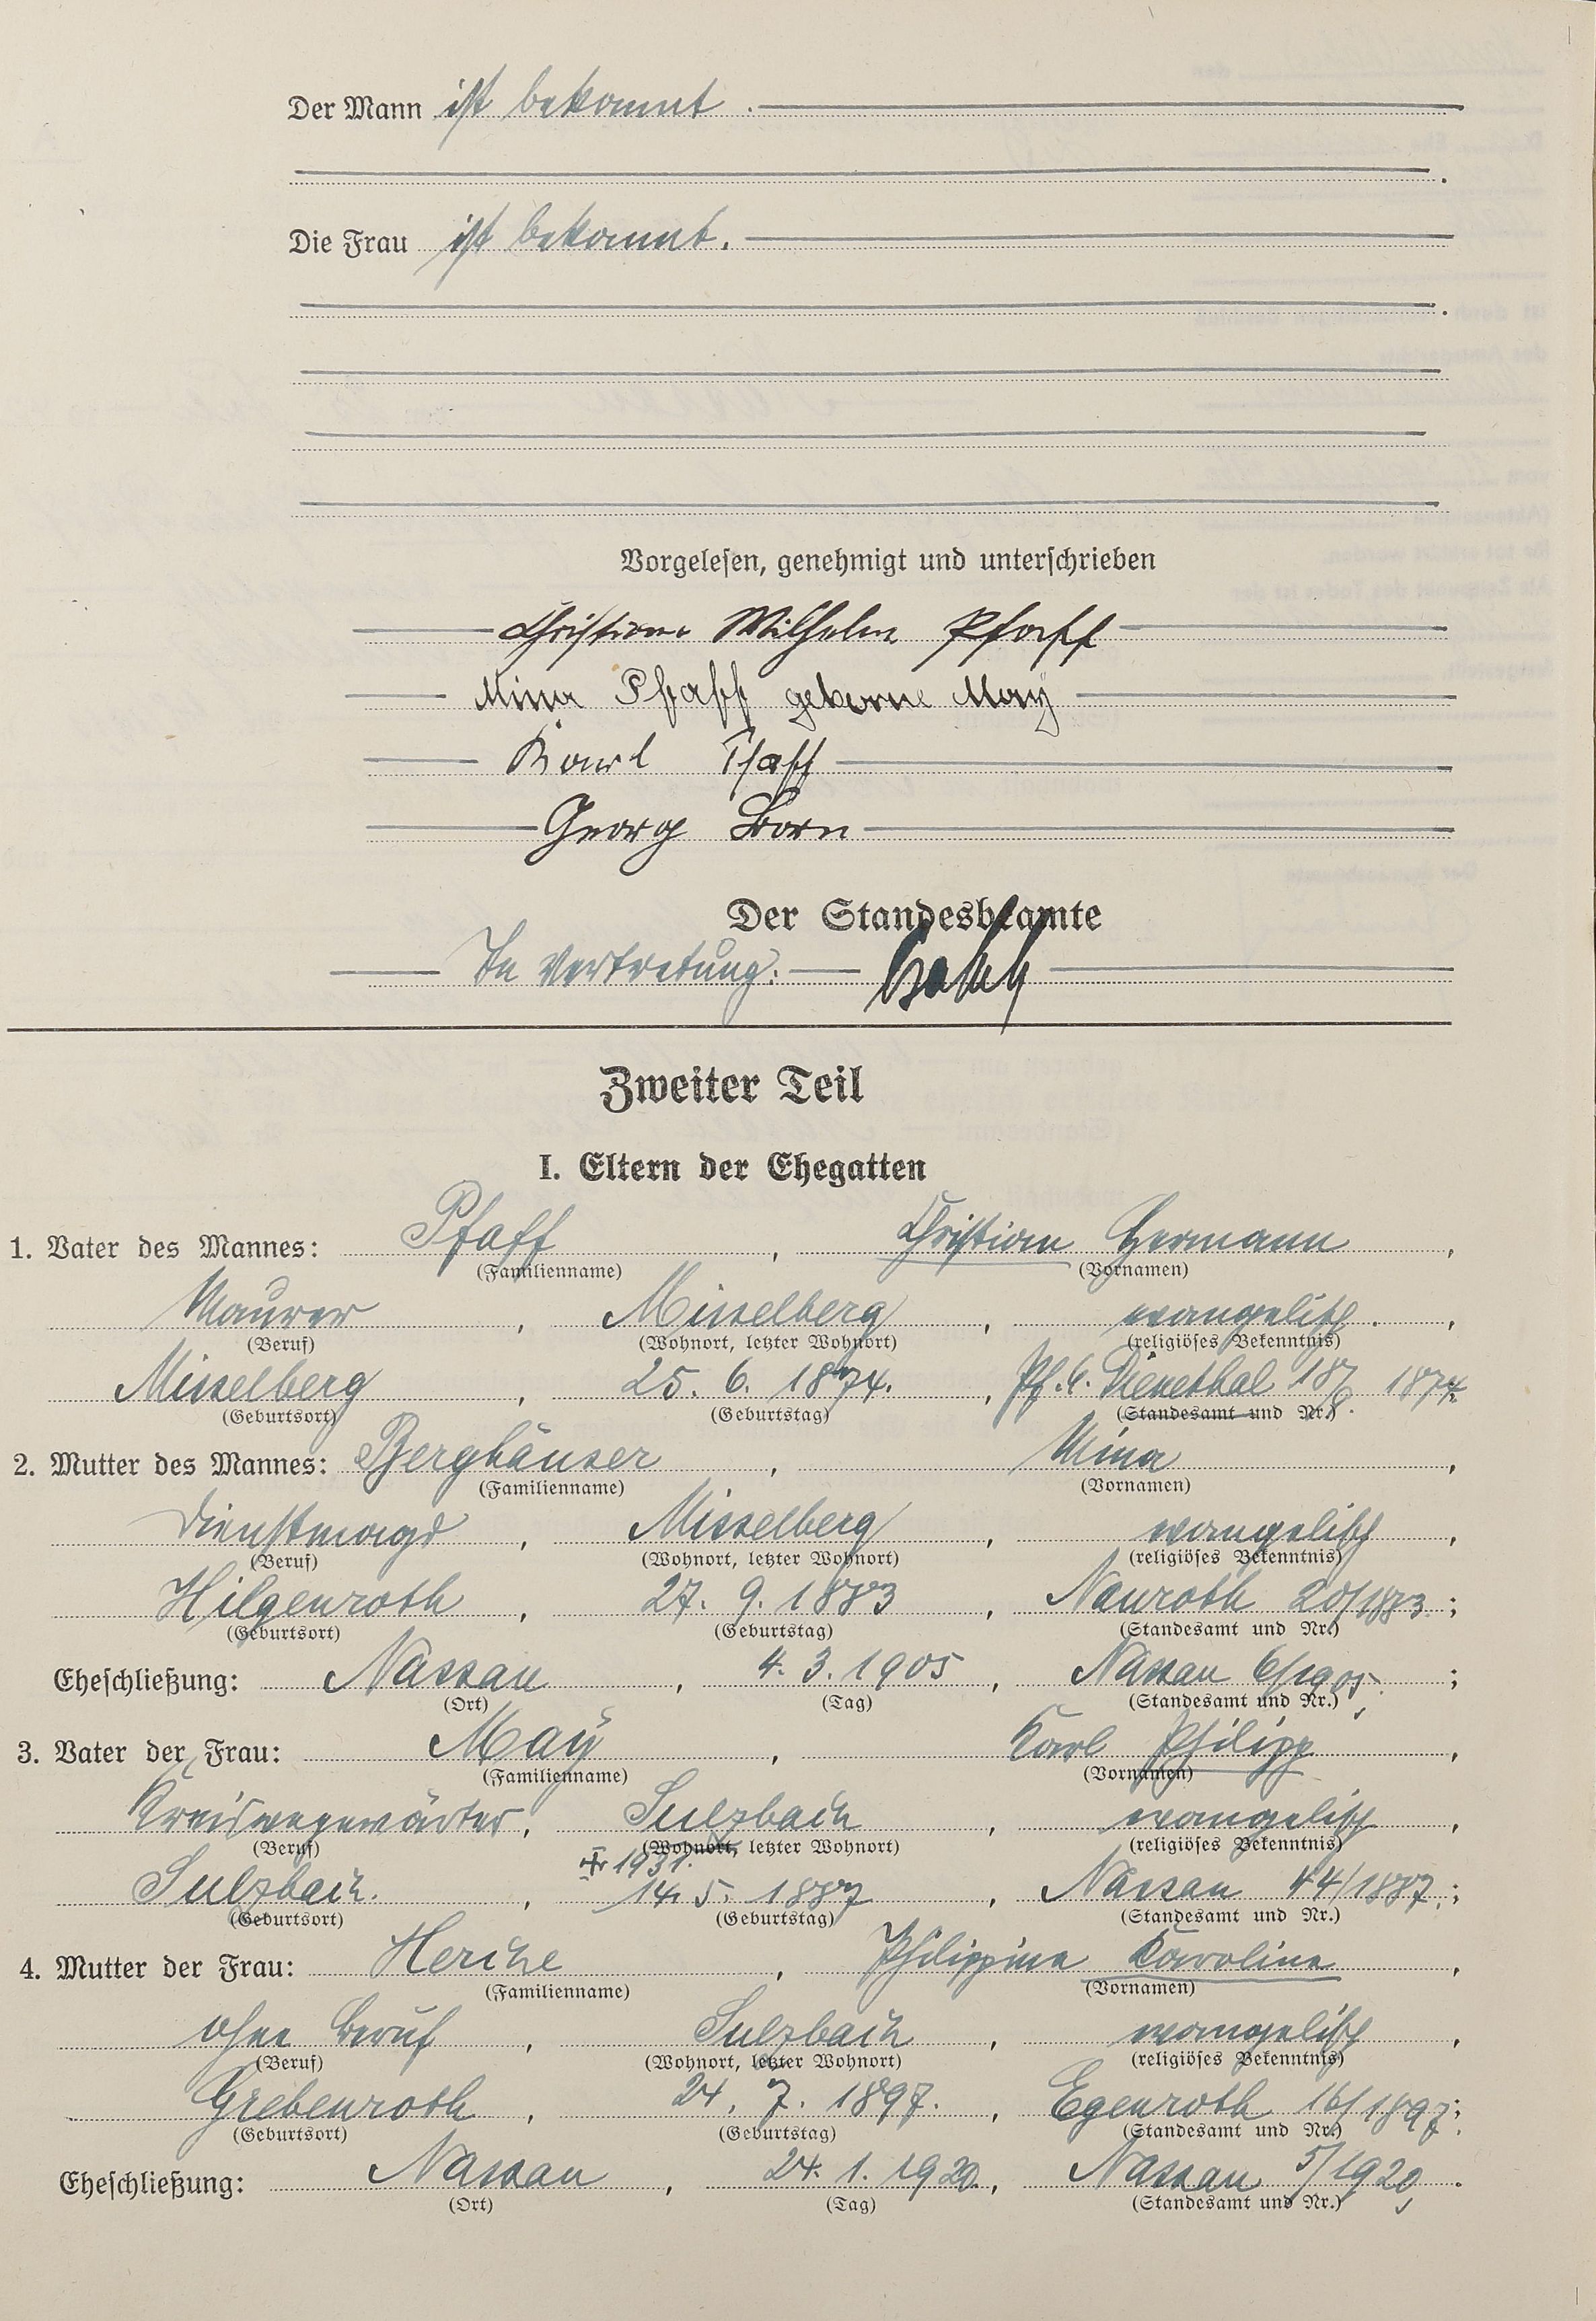 Der Mann ist bekannt.
Die Frau ist bekannt.
Vorgelesen, genehmigt und unterschrieben
Christian Wilhelm Pfaff
Mina Pfaff geborne May
Karl Pfaff
Georg Born
Der Standesbeamte
In Vertretung:
Zweiter Teil
I. Eltern der Ehegatten
1. Vater des Mannes: Pfaff, Christian Hermann,
(Familienname) (Vornamen)
Maurer, Misselberg, evangelisch.,
(Beruf) (Wohnort, letzter Wohnort) (religiöses Bekenntnis)
Misselberg, 25. 6. 1874., Pf. A. Dienethal 1874.
(Geburtsort) (Geburtstag) (Standesamt und Nr.)
2. Mutter des Mannes: Berghäuser, Mina,
(Familienname) (Vornamen)
Dienstmagd, Misselberg, evangelisch,
(Beruf) (Wohnort, letzter Wohnort) (religiöses Bekenntnis)
Hilgenroth, 27. 9. 1883, Nauroth 20/1883;
(Geburtsort) (Geburtstag) (Standesamt und Nr.)
Eheschließung: Nassau, 4. 3. 1905, Nassau 6/1905.;
(Ort) (Tag) (Standesamt und Nr.)
3. Vater der Frau: May, Karl Philipp,
(Familienname) (Vornamen)
Kreiswegewärter, Sulzbach, evangelisch,
(Beruf) (Wohnort, letzter Wohnort) (religiöses Bekenntnis)
1931.
Sulzbach., 14. 5. 1887, Nassau 44/1887.;
(Geburtsort) (Geburtstag) (Standesamt und Nr.)
4. Mutter der Frau: Herche, Philippine Karoline,
(Familienname) (Vornamen)
ohne Beruf, Sulzbach, evangelisch,
(Beruf) (Wohnort, letzter Wohnort) (religiöses Bekenntnis)
Grebenroth, 24. 7. 1897., Egenroth 16/1897.;
(Geburtsort) (Geburtstag) (Standesamt und Nr.)
Eheschließung: Nassau, 24. 1. 1920., Nassau 5/1920.
(Ort) (Tag) (Standesamt und Nr.)